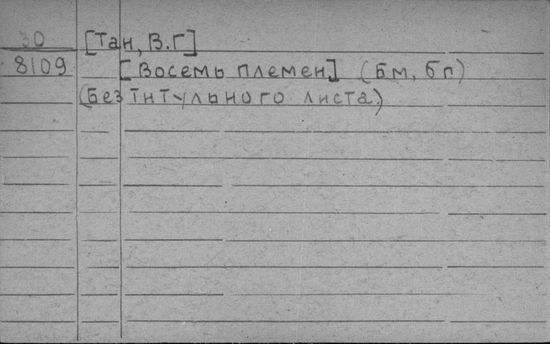 30 [Тан, В.Г]
8109 [Восемь племен] (бм, бг)
(Без титульного листа)